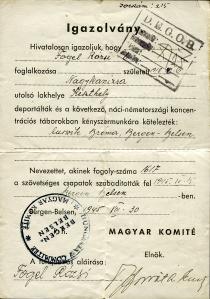 Igazolvány
Hivatalosan igazoljuk, hogy
Fogel Rozsi
D.E.G.O.B.
foglalkozása született
Nagykanizsa
utolsó lakhelye Keszthely
deportálták és a következő, náci-németországi koncent-
rációs táborokban kényszermunkára kötelezték:
Bergen-Belsen
Nevezettet, akinek fogoly-száma 1617
a szövetséges csapatok szabadították fel 1945
Bergen Belsen -ben.
Bergen-Belsen, 1945 30
MAGYAR KOMITÉ
BERGEN-BELSEN
Elnök.
A aláírása:
Fogel Rozsi